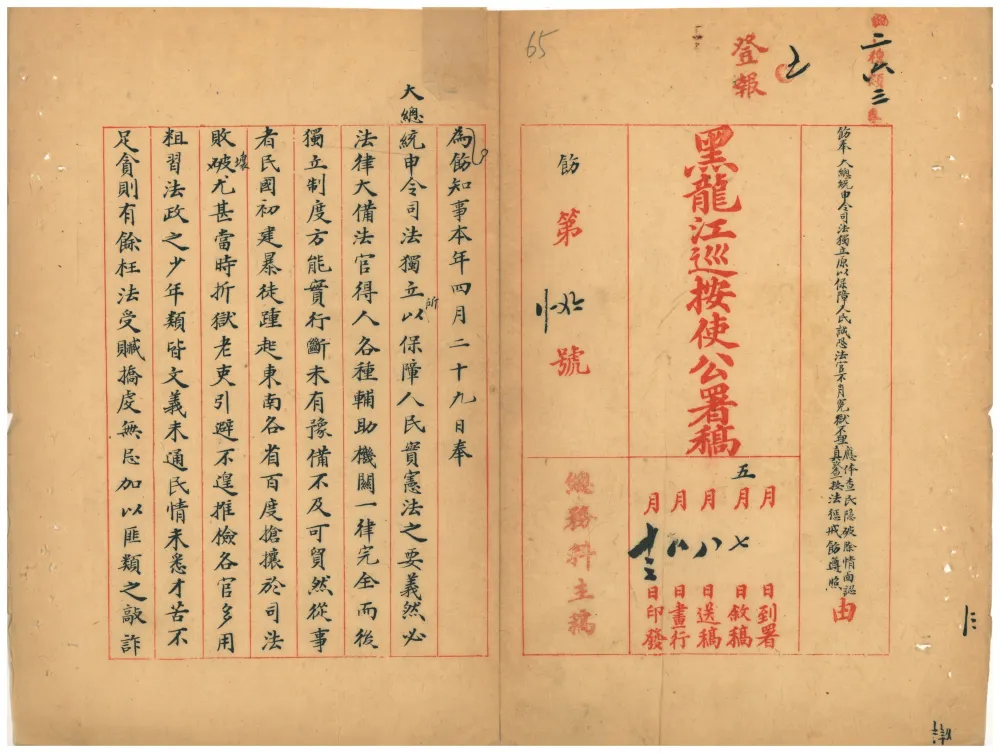 二六三
登報
65
飭奉 大總統申令司法獨立原以保障人民誠恐法官不肖冤獄不理應体查民隱破除情面認
真 按法懲戒飭遵照
由
黑龍江巡按使公署稿
月 日到署
五月七日敘稿
月八日送稿
月八日畫行
月十三日印發
飭 第 號
總務科主稿
為飭知事本年四月二十九日奉
大總統申令司法獨立所以保障人民實憲法之要義然必
法律大備法官得人各種輔助機關一律完全而後
獨立制度方能實行斷未有豫備不及可貿然從事
者民國初建暴徒踵起東南各省百度搶攘於司法
敗壞破尤甚當時折獄老吏引避不遑推檢各官多用
粗習法政之少年類皆文義未通民情未悉才苦不
足貪則有餘枉法受贓撟虔無忌加以匪類之敲詐